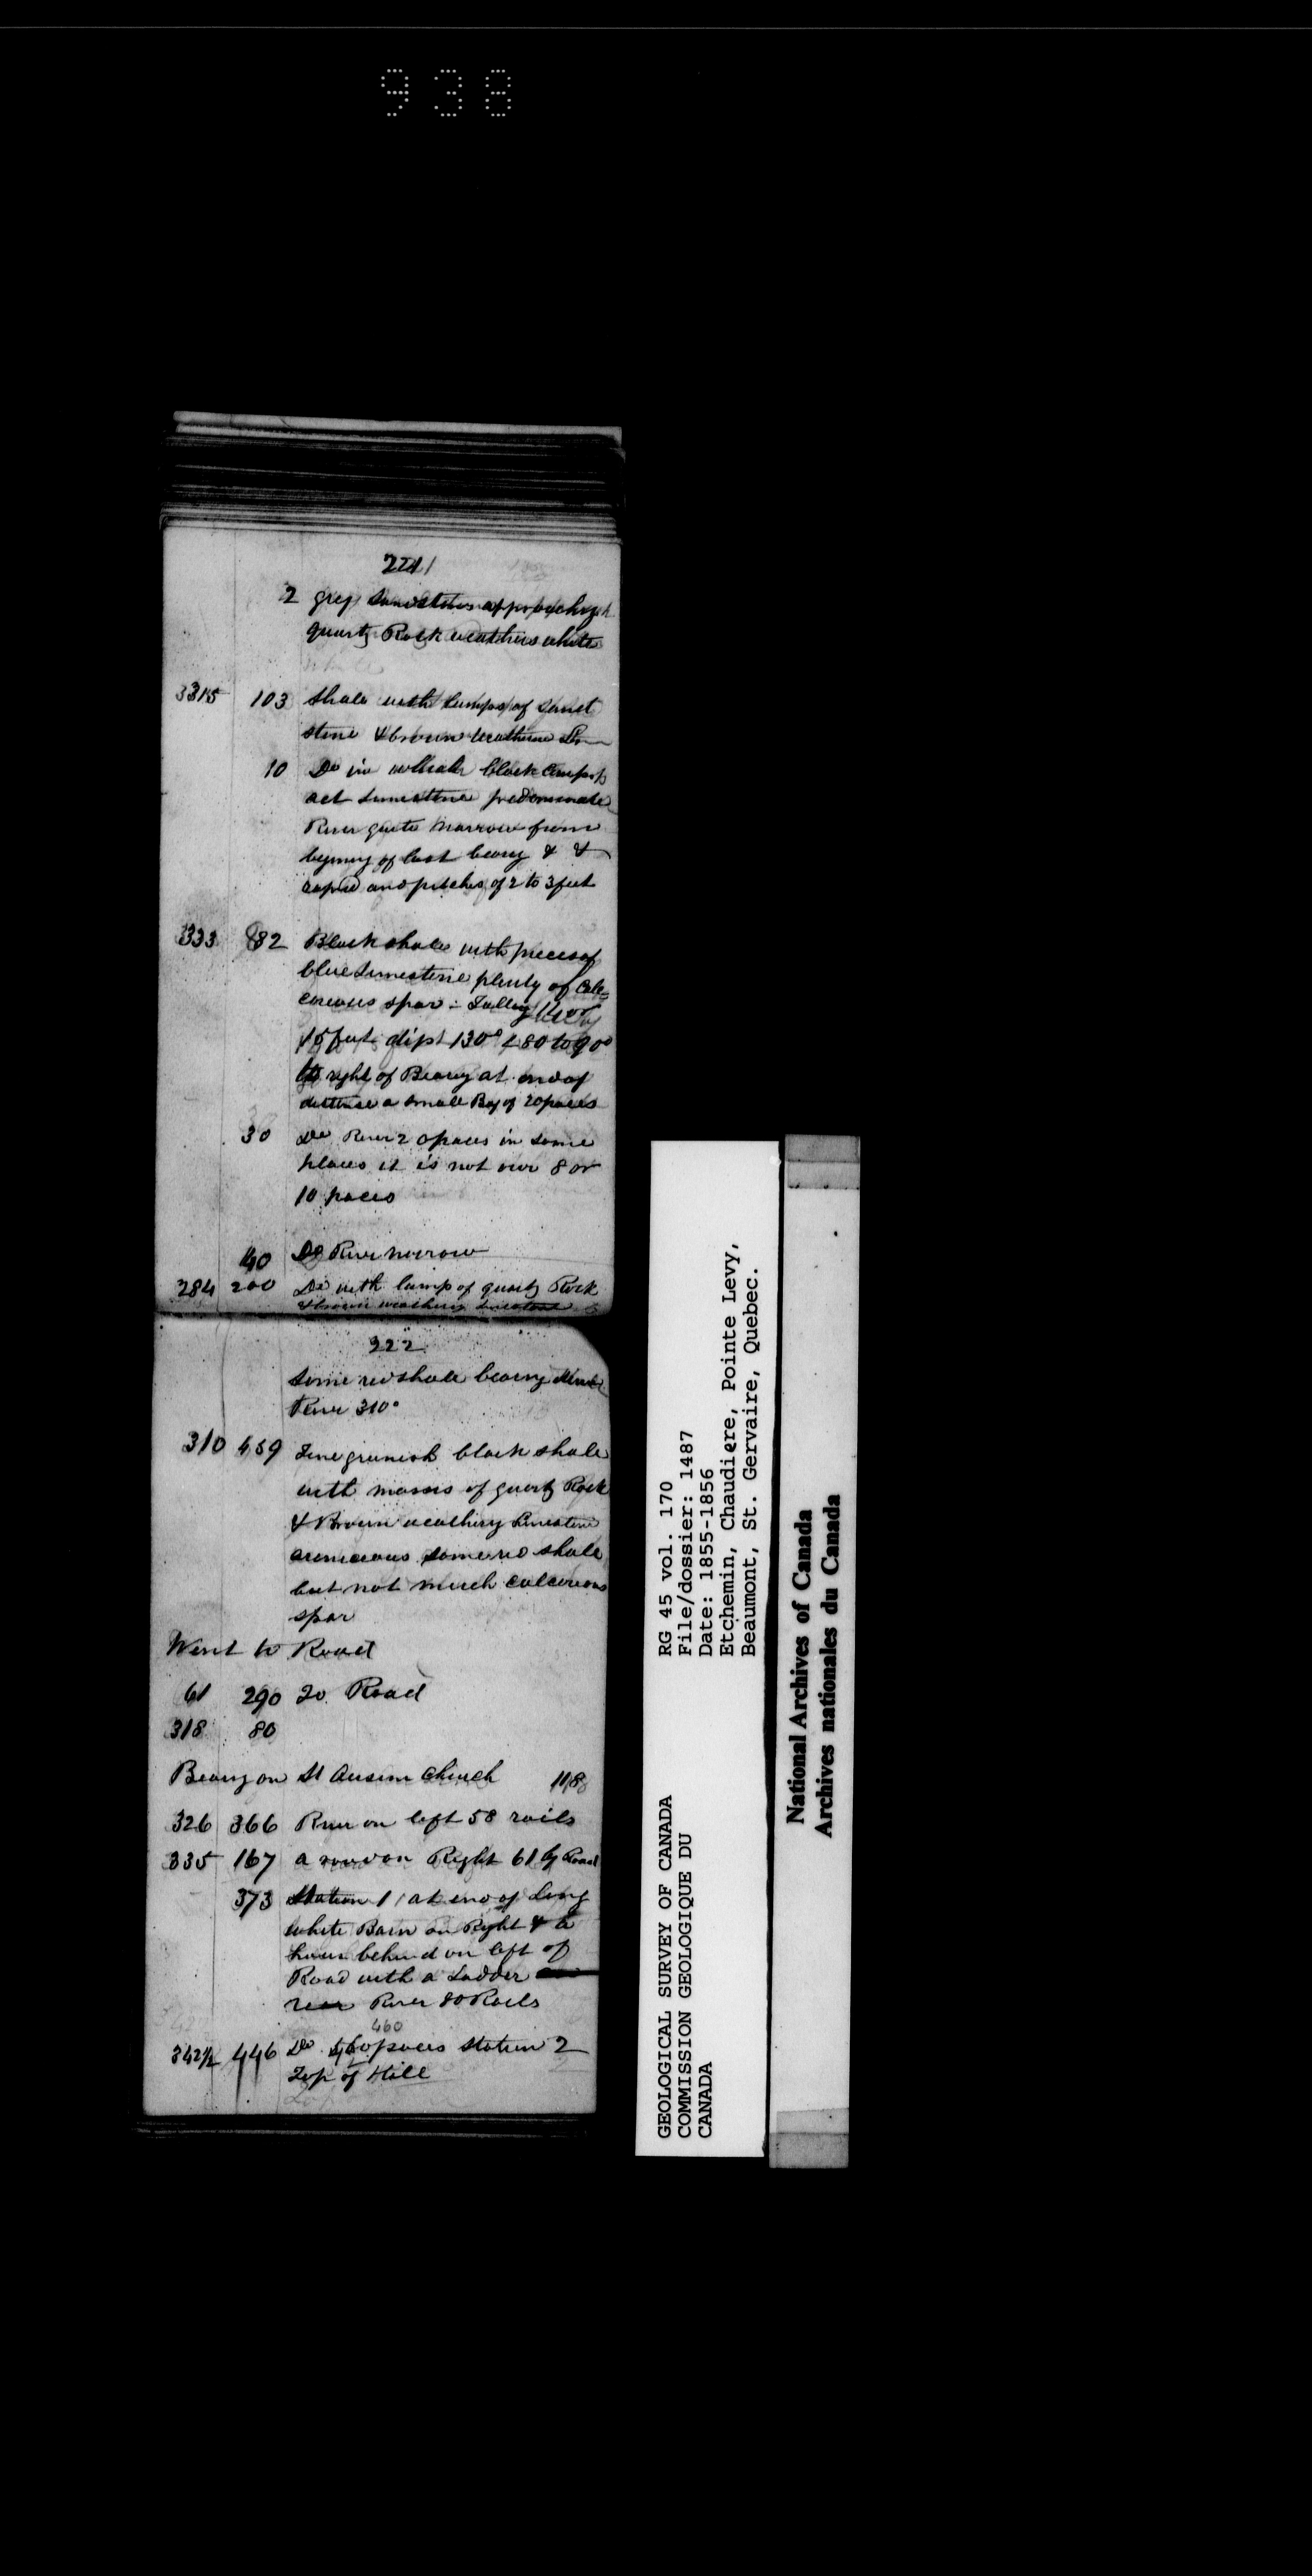 938
221
2 grey sandstone approaching
quartz Rock weathers white
3315 103 shale with lumps of sand
stone & brown weathering
10 Do in which black comp
act Limestone predominate
River quite narrow from
begining of last bearing & &
rapid and pitches of 2 to 3 feet
333 82 Black shale with pieces of
blue Limestone plenty of Cale=
careous spar = Falling River
15 feet dip 130° < 80 to 90°
to right of Bearing at end of
distance a small Bay of 20 paces
30 Do River 20 paces in some
places it is not over 8 or
10 paces
40 Do River narrow
284 200 Do with lump of quartz Rock
& brown weathering Limestone &
222
some red shale bearing
River 310°
310 459 Fine greenish black shale
with masses of quartz Rock
& Brown weathering Limestone
arenaceous some red shale
but not much calcareous
spar
Went to Road
61 290 To Road
318 80
Bearing on St Church 118
326 366 River on left 58 rails
335 167 a road on Right 61 by Road
373 Station 1 at end of Long
white Barn on Right & a
house behind on left of
Road with a Ladder
near River 80 Rails
460
342½ 446 Do paces station 2
Top of Hill
GEOLOGICAL SURVEY OF CANADA
COMMISSION GEOLOGIQUE DU
CANADA
RG 45 vol. 170
File/dossier: 1487
Date: 1855-1856
Etchemin, Chaudiere, Pointe Levy,
Beaumont, St. Gervaire, Quebec.
National Archives of Canada
Archives nationales du Canada